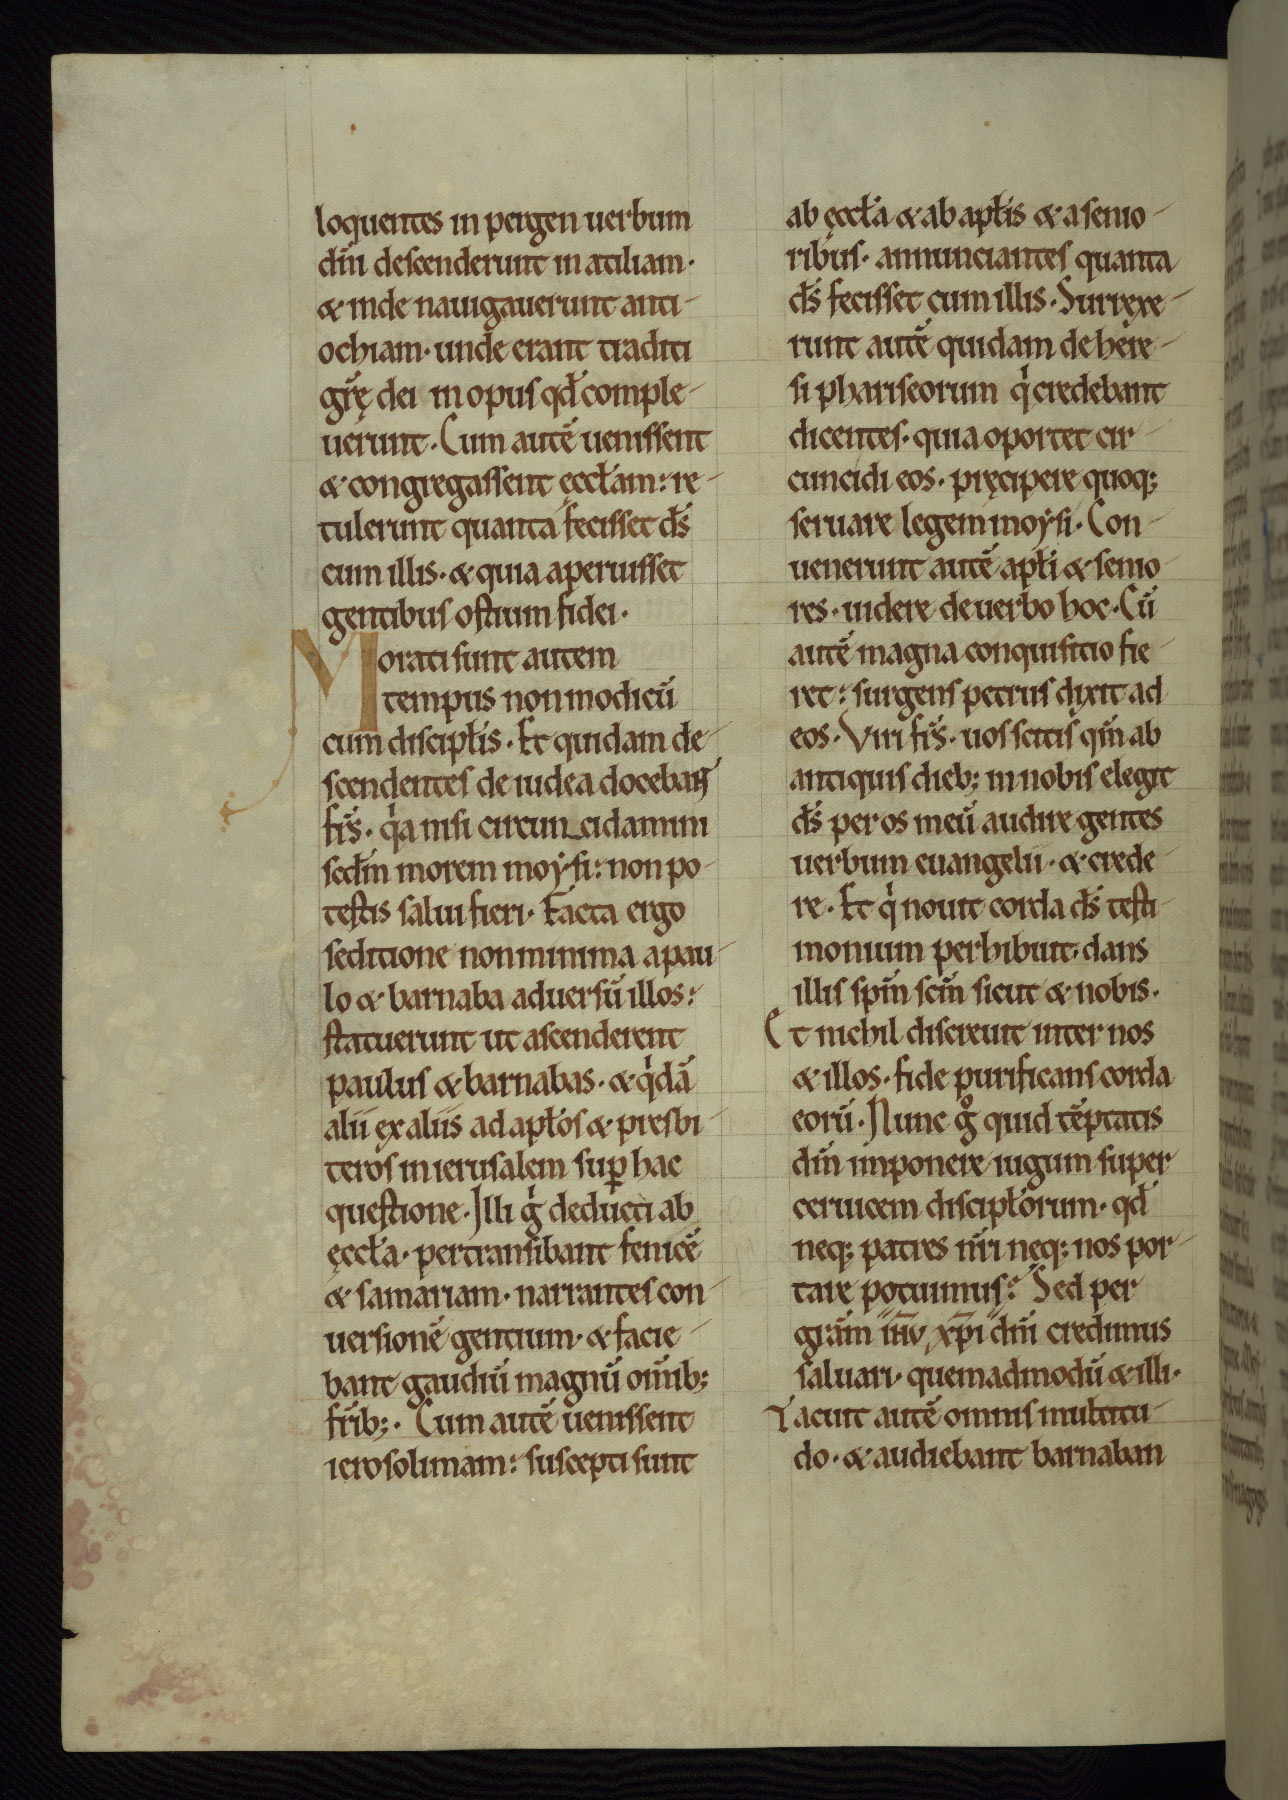 loquentes in pergen uerbum
dñi descenderunt in atiliam·
& inde nauigauerunt anti-
ochiam· unde erant traditi
gr̃ę dei in opus qđ comple-
uerunt· Cum autẽ uenissent
& congregassent ęccƚam: re-
tulerunt quanta fecisset ds̃
cum illis· & quia aperuisset
gentibus ostium fidei·
Morati sunt autem
tempus non modicũ
cum discipƚis· Et quidam de-
scendentes de iudea doceban̄t
fr̃s· qͥa nisi circuncidamini
secđm morem moysi: non po-
testis salui fieri· Facta ergo
seditione non minima a pau-
lo & barnaba aduersũ illos:
statuerunt ut ascenderent
paulus & barnabas· & qͥdã
alii ex aliis ad apƚos & presbi-
teros in ierusalem suꝑ hac
questione· Illi gͥ deducti ab
ęccƚa· pertransibant fenicẽ
& samariam· narrantes con-
uersionẽ gentium· & facie-
bant gaudiũ magnũ om̃ib;
fr̃ib;· Cum autẽ uenissent
ierosolimam: suscepti sunt
ab ęccƚa & ab apƚis & a senio-
ribus· annunciantes quanta
ds̃ fecisset cum illis· Surrexe-
runt autẽ quidam de here-
si phariseorum qͥ credebant
dicentes· quia oportet cir-
cuncidi eos· pręcipere quoq;
seruare legem moysi· Con-
uenerunt autẽ apƚi & senio-
res· uidere de uerbo hoc· Cũ
autẽ magna conquisitio fie-
ret: surgens petrus dixit ad
eos· Viri fr̃s· uos scitis qm̃ ab
antiquis dieb; in nobis elegit
ds̃ per os meũ audire gentes
uerbum euangelii· & crede-
re· Et qͥ nouit corda ds̃ testi-
monium perhibuit· dans
illis spm̃ scm̃ sicut & nobis·
Et nichil discreuit inter nos
& illos· fide purificans corda
eorũ· Nunc gͦ quid tẽptatis
dñm imponere iugum super
ceruicem discipƚorum· qđ
neq; patres nr̃i neq; nos por-
tare potuimus: Sed per
gram̃ ihũ xp̃i dñi credimus
saluari· quemadmodũ & illi·
Tacuit autẽ omnis multitu-
do· & audiebant barnaban